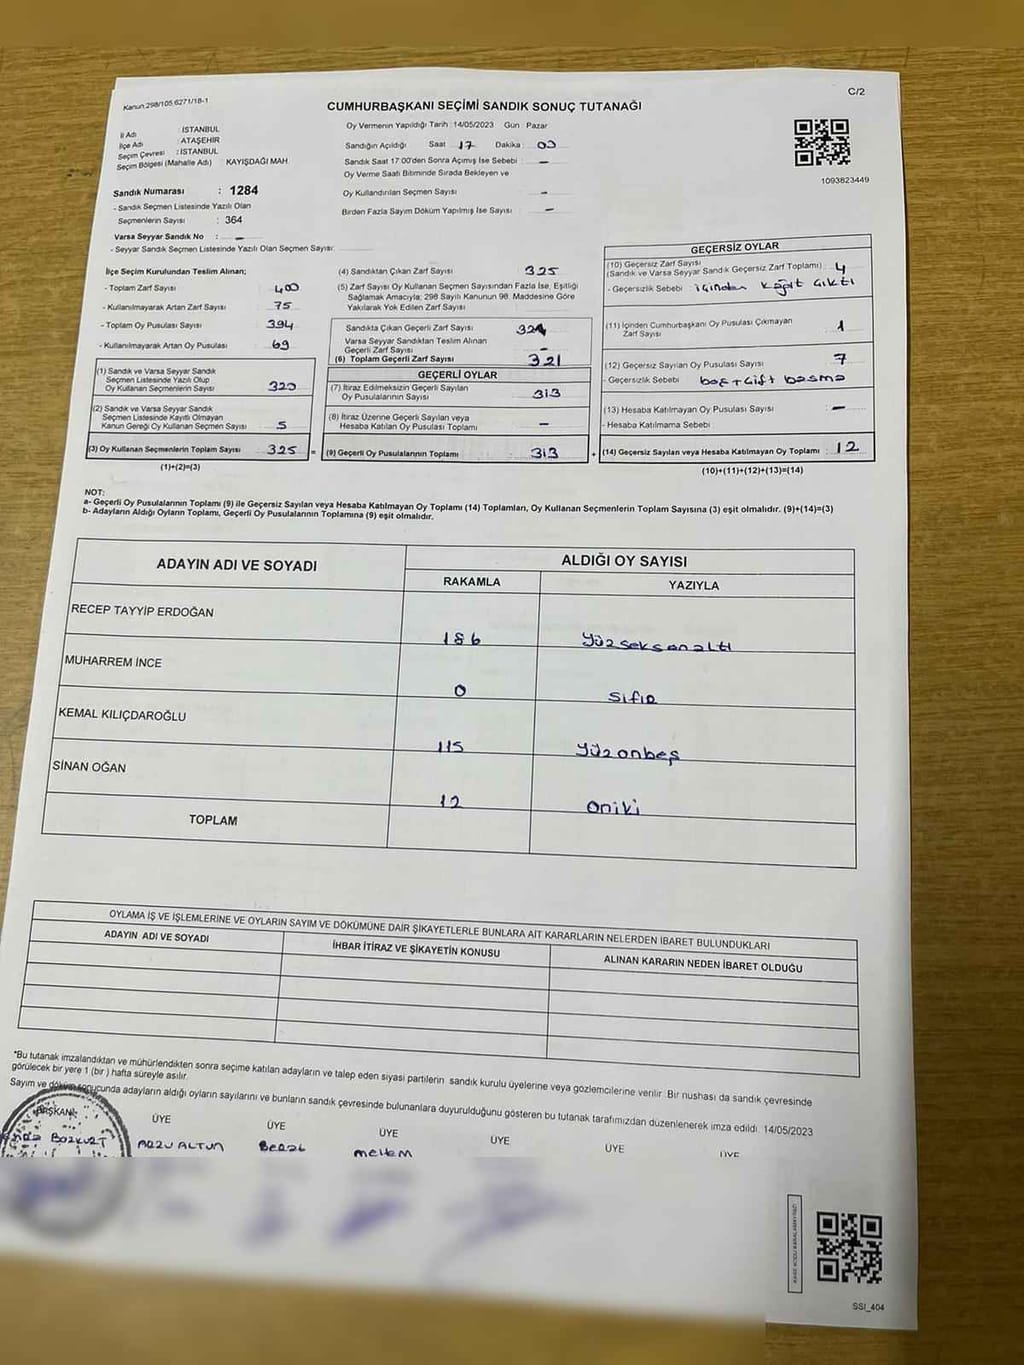 Kanun.298/105.6271/18-1
C/2
CUMHURBAŞKANI SEÇİMİ SANDIK SONUÇ TUTANAĞI
İl Adı : İSTANBUL
İlçe Adı : ATAŞEHİR
Seçim Çevresi : İSTANBUL
Seçim Bölgesi (Mahalle Adı) : KAYIŞDAĞI MAH.
Sandık Numarası : 1284
- Sandık Seçmen Listesinde Yazılı Olan
Seçmenlerin Sayısı : 364
Varsa Seyyar Sandık No : –
- Seyyar Sandık Seçmen Listesinde Yazılı Olan Seçmen Sayısı:
Oy Vermenin Yapıldığı Tarih :14/05/2023 Gün : Pazar
Sandığın Açıldığı Saat 17 Dakika : 00
Sandık Saat 17:00'den Sonra Açımış İse Sebebi : –
Oy Verme Saati Bitiminde Sırada Bekleyen ve
Oy Kullandırılan Seçmen Sayısı : –
Birden Fazla Sayım Döküm Yapılmış İse Sayısı : –
1093823449
İlçe Seçim Kurulundan Teslim Alınan;
- Toplam Zarf Sayısı : 400
- Kullanılmayarak Artan Zarf Sayısı : 75
- Toplam Oy Pusulası Sayısı : 394
- Kullanılmayarak Artan Oy Pusulası : 69
(1) Sandık ve Varsa Seyyar Sandık
Seçmen Listesinde Yazılı Olup
Oy Kullanan Seçmenlerin Sayısı : 320
(2) Sandık ve Varsa Seyyar Sandık
Seçmen Listesinde Kayıtlı Olmayan
Kanun Gereği Oy Kullanan Seçmen Sayısı : 5
(3) Oy Kullanan Seçmenlerin Toplam Sayısı : 325
(1)+(2)=(3)
(4) Sandıktan Çıkan Zarf Sayısı : 325
(5) Zarf Sayısı Oy Kullanan Seçmen Sayısından Fazla İse, Eşitliği
Sağlamak Amacıyla; 298 Sayılı Kanunun 98. Maddesine Göre
Yakılarak Yok Edilen Zarf Sayısı :
Sandıkta Çıkan Geçerli Zarf Sayısı : 321
Varsa Seyyar Sandıktan Teslim Alınan
Geçerli Zarf Sayısı : –
(6) Toplam Geçerli Zarf Sayısı : 321
GEÇERLİ OYLAR
(7) İtiraz Edilmeksizin Geçerli Sayılan
Oy Pusulalarının Sayısı : 313
(8) İtiraz Üzerine Geçerli Sayılan veya
Hesaba Katılan Oy Pusulası Toplamı : –
= (9) Geçerli Oy Pusulalarının Toplamı : 313
GEÇERSİZ OYLAR
(10) Geçersiz Zarf Sayısı
(Sandık ve Varsa Seyyar Sandık Geçersiz Zarf Toplamı) : 4
- Geçersizlik Sebebi : içinden kağıt çıktı
(11) İçinden Cumhurbaşkanı Oy Pusulası Çıkmayan
Zarf Sayısı : 1
(12) Geçersiz Sayılan Oy Pusulası Sayısı : 7
- Geçersizlik Sebebi : boş+çift basma
(13) Hesaba Katılmayan Oy Pusulası Sayısı : –
- Hesaba Katılmama Sebebi :
+ (14) Geçersiz Sayılan veya Hesaba Katılmayan Oy Toplamı : 12
(10)+(11)+(12)+(13)=(14)
NOT:
a- Geçerli Oy Pusulalarının Toplamı (9) ile Geçersiz Sayılan veya Hesaba Katılmayan Oy Toplamı (14) Toplamları, Oy Kullanan Seçmenlerin Toplam Sayısına (3) eşit olmalıdır. (9)+(14)=(3)
b- Adayların Aldığı Oyların Toplamı, Geçerli Oy Pusulalarının Toplamına (9) eşit olmalıdır.
ADAYIN ADI VE SOYADI
ALDIĞI OY SAYISI
RAKAMLA YAZIYLA
RECEP TAYYİP ERDOĞAN 186 Yüzseksenaltı
MUHARREM İNCE 0 Sıfır
KEMAL KILIÇDAROĞLU 115 Yüzonbeş
SİNAN OĞAN 12 Oniki
TOPLAM
OYLAMA İŞ VE İŞLEMLERİNE VE OYLARIN SAYIM VE DÖKÜMÜNE DAİR ŞİKAYETLERLE BUNLARA AİT KARARLARIN NELERDEN İBARET BULUNDUKLARI
ADAYIN ADI VE SOYADI İHBAR İTİRAZ VE ŞİKAYETİN KONUSU ALINAN KARARIN NEDEN İBARET OLDUĞU
*Bu tutanak imzalandıktan ve mühürlendikten sonra seçime katılan adayların ve talep eden siyasi partilerin sandık kurulu üyelerine veya gözlemcilerine verilir. Bir nushası da sandık çevresinde
görülecek bir yere 1 (bir ) hafta süreyle asılır.
Sayım ve döküm sonucunda adayların aldığı oyların sayılarını ve bunların sandık çevresinde bulunanlara duyurulduğunu gösteren bu tutanak tarafımızdan düzenlenerek imza edildi. 14/05/2023
BAŞKAN ÜYE ÜYE ÜYE ÜYE ÜYE ÜYE
BOZKURT ARZU ALTUN Meltem
SSI_404